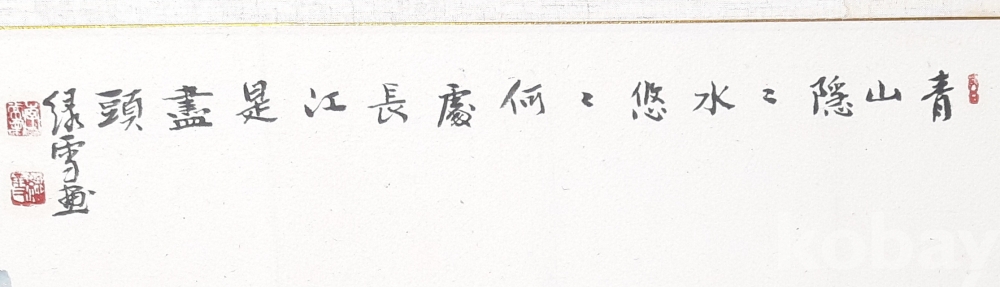 青山隱〻水悠〻何處長江是盡頭
綠雪畫
kobay